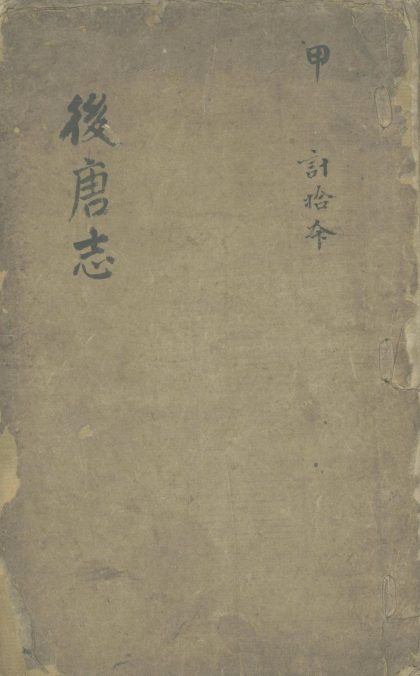 甲
計拾夲
後唐志